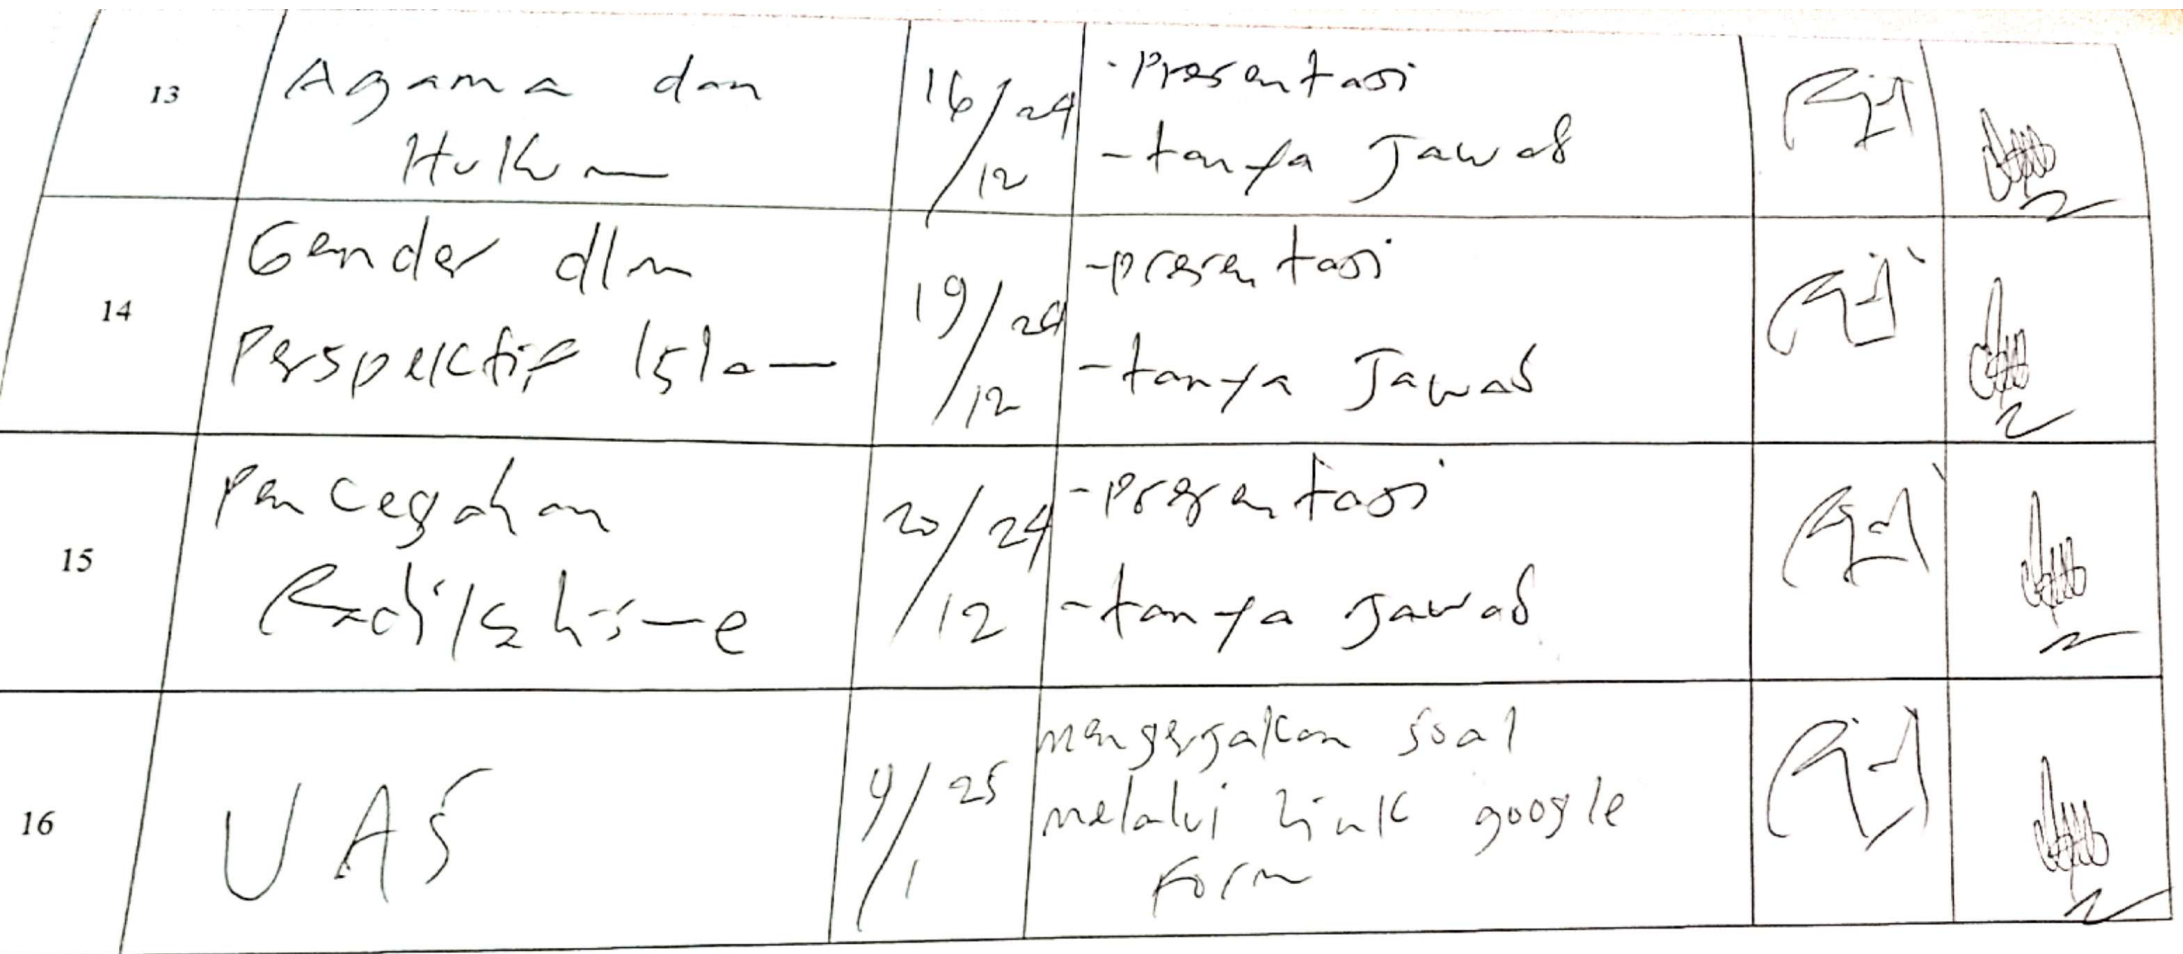 13
Agama dan
Hukum
16/24
12
- Presentasi
- tanya Jawab
14
Gender dlm
Perspektif Islam
19/24
12
- presentasi
- tanya Jawab
15
Pencegahan
Radikalisme
20/24
12
- Presentasi
- tanya Jawab
16
UAS
9/25
1
mengerjakan soal
melalui link google
Form